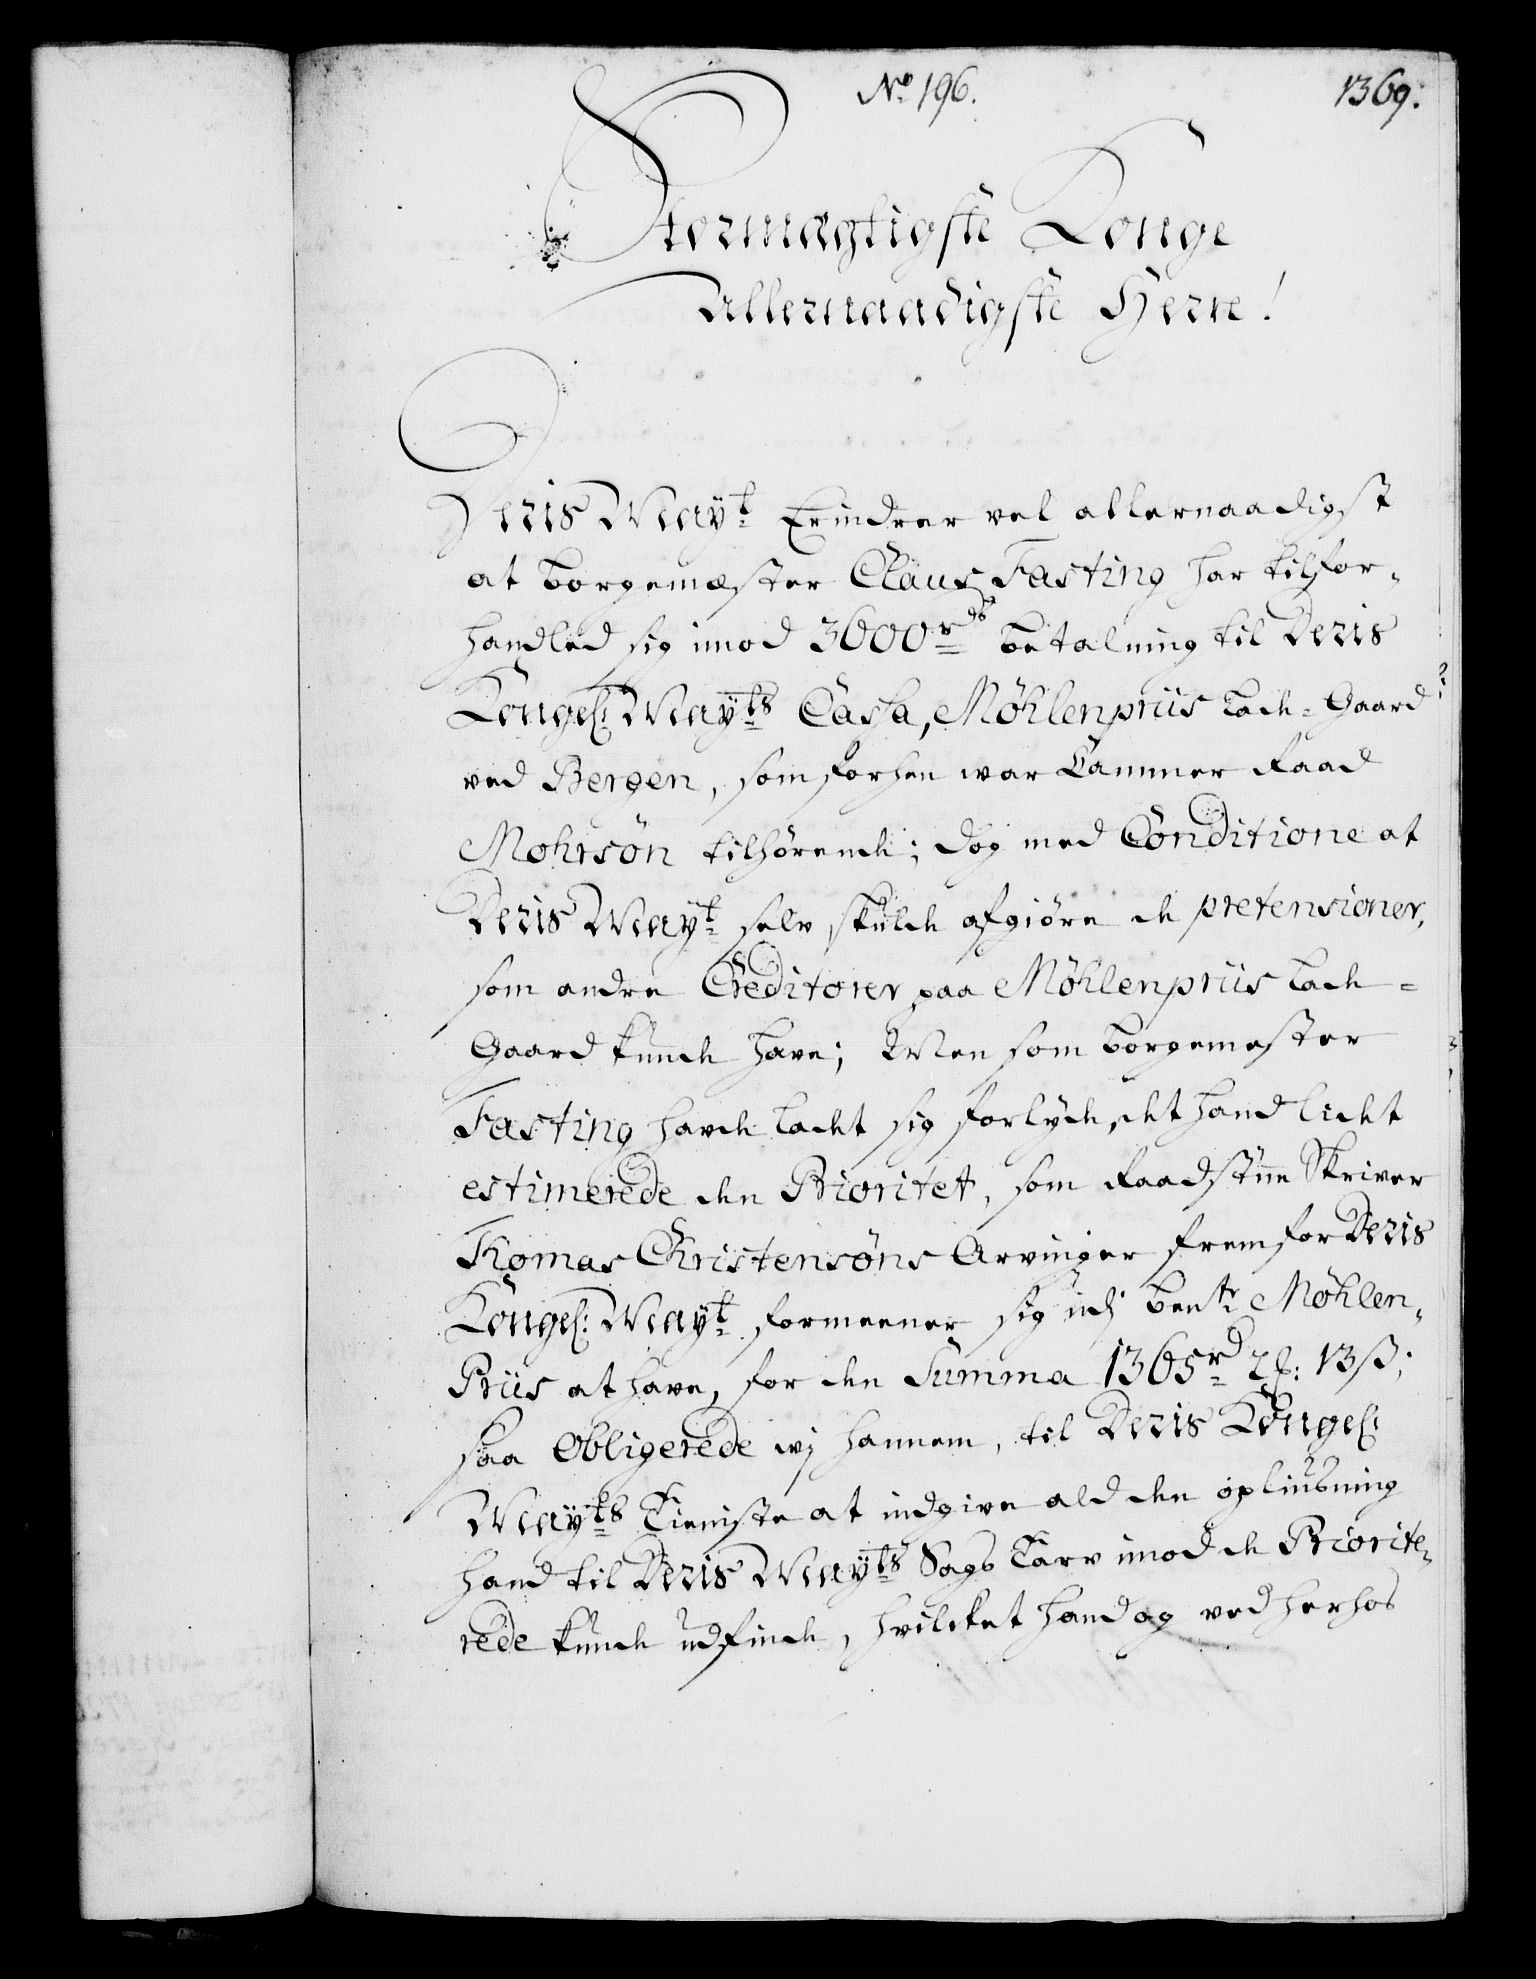 No 196.
1369.
Stormægtigste Konge
Allernaadigste Herre!
Deris Mayt Erindrer vel allernaadigst
at borgemæster Claus Fasting har tilfor-
handled sig imod 3600 rdr betalning til Deris
Kongel: Mayts Cassa, Møhlenpriis Lade-Gaard
ved Bergen, som forhen war Cammer Raad
Mohrsøn tilhørende; dog med Conditione at
Deris Mayt selv skulde afgiøre de pretensioner,
som andre Creditorer paa Møhlenpriis Lade-
Gaard kunde have; Men som borgemester
Fasting hafde ladet sig forlyde, at hand lidet
estimerede den Prioritet, som Raadstue Skriver
Thomas Christensøns Arvinger frem for Deris
Kongel: Mayt formeener sig udj bemte Møhlen-
Priis at have, for den Summa 1365 rd 2 ₰: 13 ß;
saa Obligerede wj hannem, til Deris Kongel:
Mayts Tieniste at indgive ald den opliusning
hand til Deris Mayts Sags Tarv imod de Priorite-
rede kunde udfinde, hvilcket hand og ved herhos